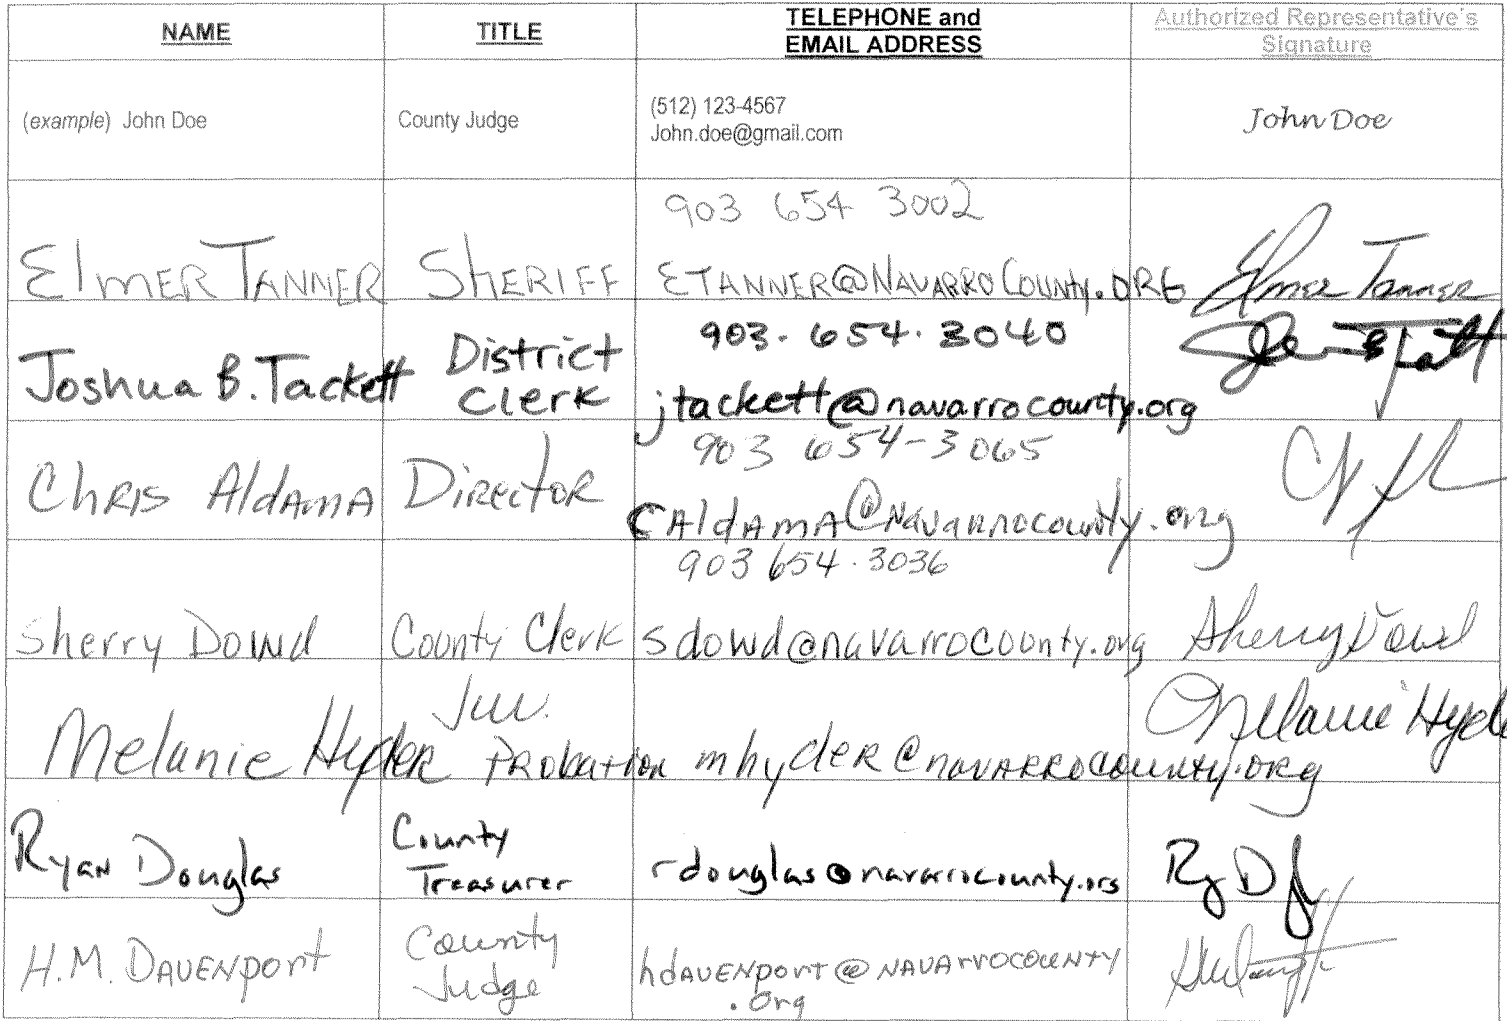 NAME TITLE TELEPHONE and EMAIL ADDRESS Authorized Representative's Signature
(example) John Doe County Judge (512) 123-4567
John.doe@gmail.com John Doe
903 654 3002
Elmer Tanner Sheriff ETANNER@NavarroCounty.ORG Elmer Tanner
903.654.3040
Joshua B. Tackett District Clerk
jtackett@navarrocounty.org
903 654-3065
Chris Aldama Director
CAldama@Navarrocounty.org
903 654.3036
Sherry Dowd County Clerk sdowd@navarrocounty.org Sherry Dowd
Juv.
Melanie Hyder Probation mhyder@navarrocounty.org Melanie Hyde
Ryan Douglas County Treasurer rdouglas@navarrocounty.org
H.M. Davenport County Judge hdavenport@navarrocounty
.org